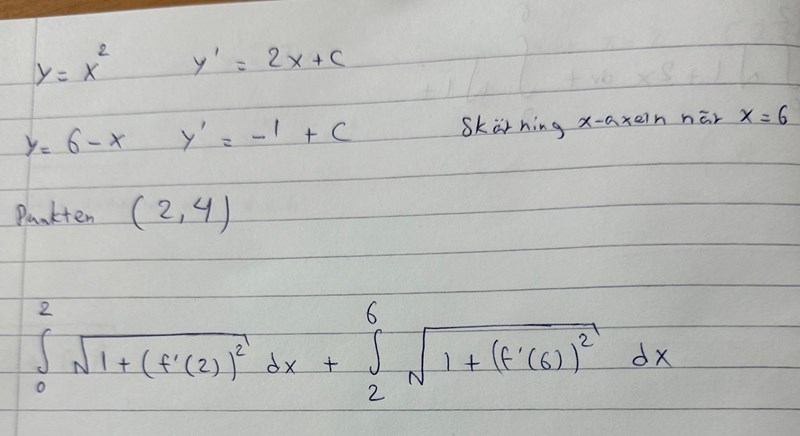 y = x² y' = 2x + C
y = 6 - x y' = -1 + C Skärning x-axeln när x = 6
Punkten (2,4)
∫₀² √(1 + (f'(2))²) dx + ∫₂⁶ √(1 + (f'(6))²) dx